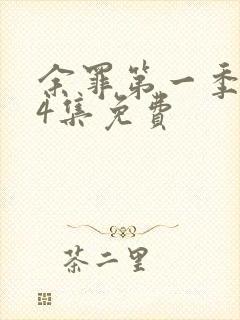 余罪第一季
4集免费
茶二里